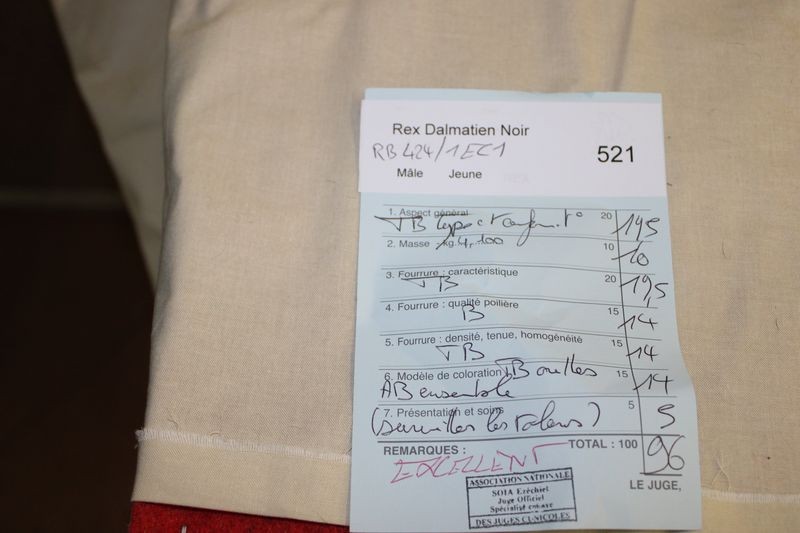 Rex Dalmatien Noir
RB 424/1EC1
521
Mâle Jeune
1. Aspect général 20 19,5
TB type et conform t°
2. Masse kg. 4,100 10 10
3. Fourrure : caractéristique 20 19,5
TB
4. Fourrure : qualité poilière 15 14
B
5. Fourrure : densité, tenue, homogénéité 15 14
TB
6. Modèle de coloration TB oreilles 15 14
AB ensemble
7. Présentation et soins 5 5
(surveiller les talons)
REMARQUES : TOTAL : 100 96
EXCELLENT
LE JUGE,
ASSOCIATION NATIONALE
SOIA Ezéchiel
Juge Officiel
Spécialist
DES JUGES CUNICOLES